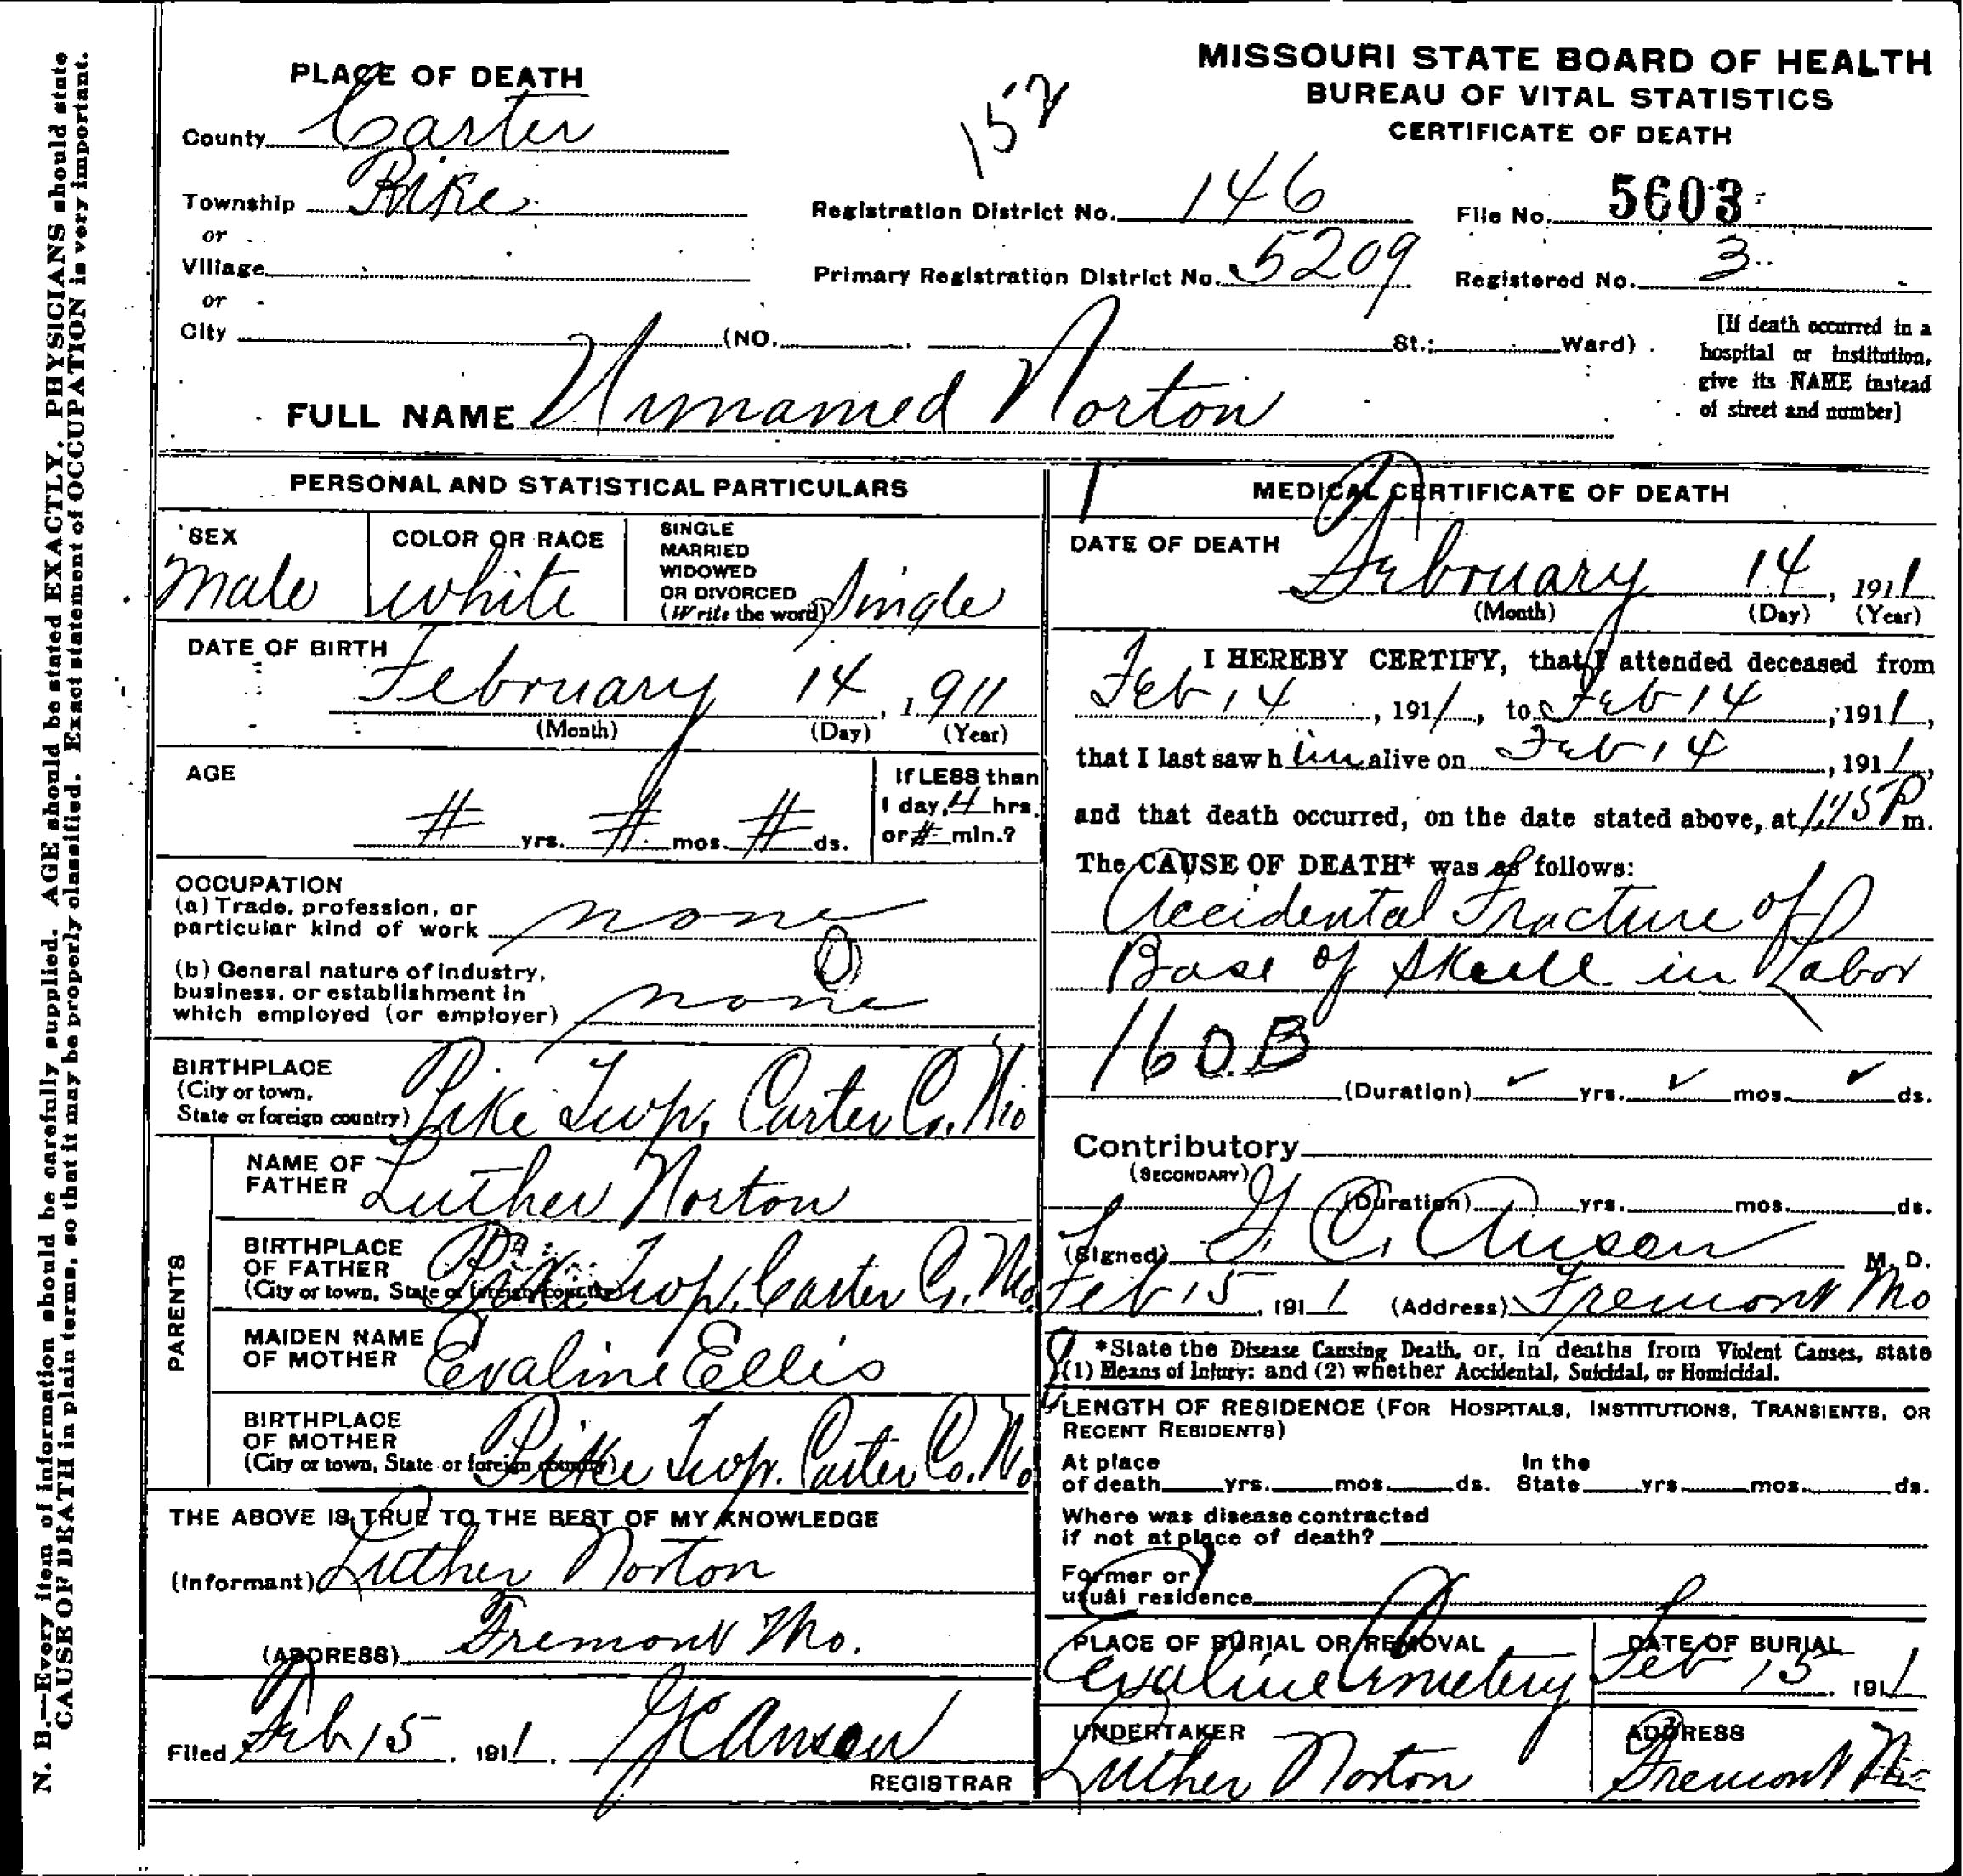 MISSOURI STATE BOARD OF HEALTH
BUREAU OF VITAL STATISTICS
CERTIFICATE OF DEATH
PLACE OF DEATH
County Carter
Township Pike
or
Village
or
City (NO. St.; Ward)
152
Registration District No. 146
File No. 5603
Primary Registration District No. 5209
Registered No. 3
[If death occurred in a
hospital or institution,
give its NAME instead
of street and number]
FULL NAME Unnamed Norton
PERSONAL AND STATISTICAL PARTICULARS
SEX
Male
COLOR OR RACE
White
SINGLE
MARRIED
WIDOWED
OR DIVORCED
(Write the word) Single
DATE OF BIRTH
February 14, 1911
(Month) (Day) (Year)
AGE
# yrs. # mos. # ds.
If LESS than
1 day, 4 hrs.
or # min.?
OCCUPATION
(a) Trade, profession, or
particular kind of work none
(b) General nature of industry,
business, or establishment in
which employed (or employer) none
BIRTHPLACE
(City or town,
State or foreign country) Pike Twp, Carter Co. Mo
PARENTS
NAME OF
FATHER Luther Norton
BIRTHPLACE
OF FATHER
(City or town, State or foreign country) Pike Twp. Carter Co. Mo.
MAIDEN NAME
OF MOTHER Evaline Ellis
BIRTHPLACE
OF MOTHER
(City or town, State or foreign country) Pike Twp. Carter Co. Mo
THE ABOVE IS TRUE TO THE BEST OF MY KNOWLEDGE
(Informant) Luther Norton
(ADDRESS) Fremont Mo.
Filed Feb 15, 1911, G C Anson
REGISTRAR
MEDICAL CERTIFICATE OF DEATH
DATE OF DEATH
February 14, 1911
(Month) (Day) (Year)
I HEREBY CERTIFY, that I attended deceased from
Feb 14, 1911, to Feb 14, 1911,
that I last saw h im alive on Feb 14, 1911,
and that death occurred, on the date stated above, at P m.
The CAUSE OF DEATH* was as follows:
Accidental Fracture of
Base of Skull in Labor
160B
(Duration) ✓ yrs. ✓ mos. ✓ ds.
Contributory
(SECONDARY)
(Duration) yrs. mos. ds.
(Signed) G. C. Anson M. D.
Feb 15, 1911 (Address) Fremont Mo
*State the Disease Causing Death, or, in deaths from Violent Causes, state
(1) Means of Injury; and (2) whether Accidental, Suicidal, or Homicidal.
LENGTH OF RESIDENCE (FOR HOSPITALS, INSTITUTIONS, TRANSIENTS, OR
RECENT RESIDENTS)
At place In the
of death yrs. mos. ds. State yrs. mos. ds.
Where was disease contracted
if not at place of death?
Former or
usual residence
PLACE OF BURIAL OR REMOVAL
Evaline Cemetery
DATE OF BURIAL
Feb 15 1911
UNDERTAKER
Luther Norton
ADDRESS
Fremont Mo
N. B.—Every item of information should be carefully supplied. AGE should be stated EXACTLY. PHYSICIANS should state
CAUSE OF DEATH in plain terms, so that it may be properly classified. Exact statement of OCCUPATION is very important.